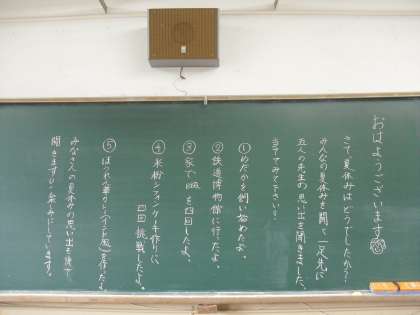 おはようございます
さて、夏休みはどうでしたか?
みんなの夏休みを聞く一足先に
五人の先生の思い出を聞きました。
当ててみてください!
①めだかを飼い始めたよ。
②鉄道博物館に行ったよ。
③家で を四回したよ。
④米粉シフォンケーキ作りに
四回挑戦したよ。
⑤ほうれん草カレー(インド風)を作ったよ
みなさんの夏休みの思い出を後で
聞きますね。楽しみにしています。